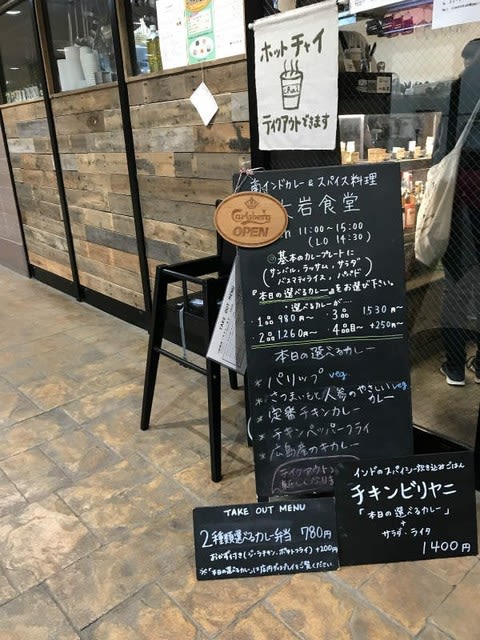 ホットチャイ
chai
テイクアウトできます
南インドカレー&スパイス料理
岩食堂
Carlsberg
OPEN
11:00〜15:00
(LO 14:30)
◎基本のカレープレートに
(サンバル、ラッサム、サラダ
バスマティライス、パパド)
『本日の選べるカレー』をお選び下さい。
選べるカレーが…
・1品 980円〜 ・3品 1530円〜
・2品 1260円〜 ・4品目〜 +250円〜
本日の選べるカレー
* パリップ veg
* さつまいもと人参のやさしいカレー veg
* 定番チキンカレー
* チキンペッパーフライ
* 広島産カキカレー
テイクアウト
TAKE OUT MENU
TAKE OUT MENU
2種類選べるカレー弁当 780円
おかず付き(ジーラチキン、ポテトフライ)+200円
※「本日の選べるカレー」は店内ディスプレイをご覧ください
インドのスパイシー炊き込みごはん
チキンビリヤニ
「本日の選べるカレー」
+
サラダ・ライタ
1400円